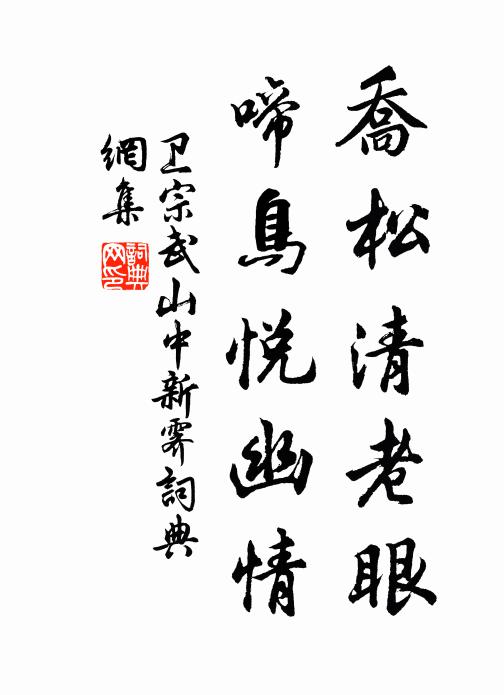 喬松清老眼
啼鳥悦幽情
卫宗武山中新霽詞典
網集
詞典
网印